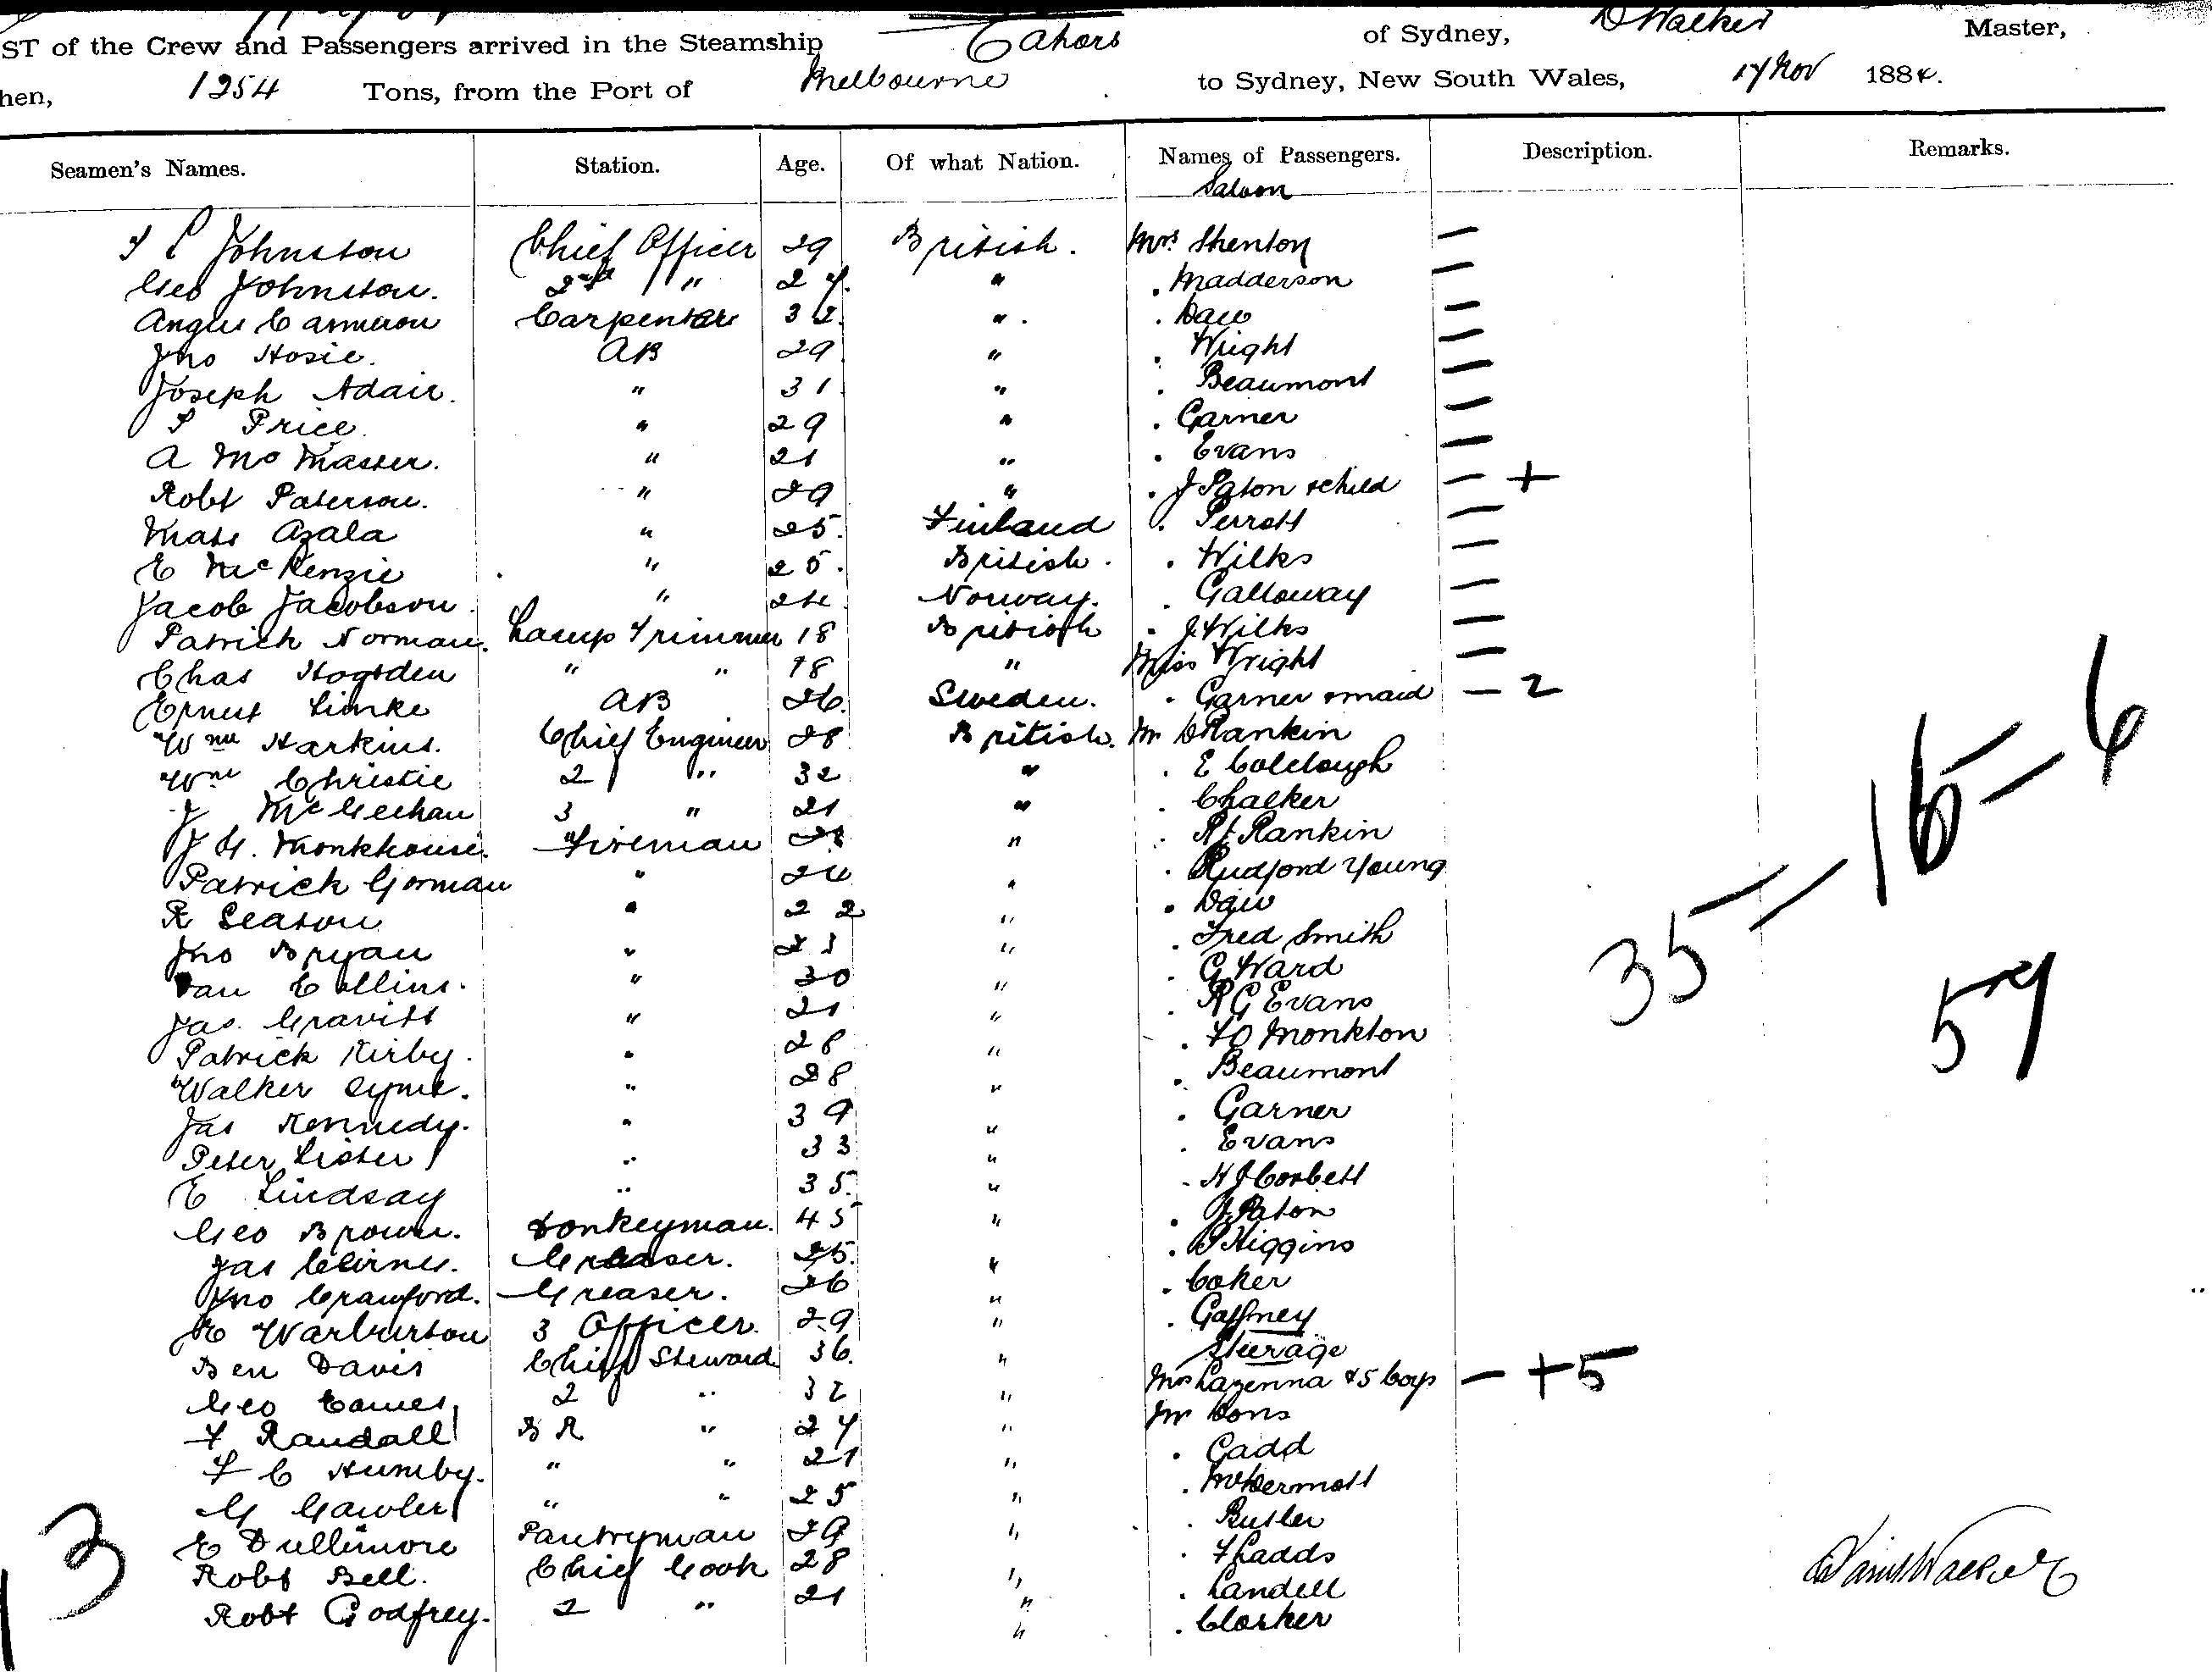 ST of the Crew and Passengers arrived in the Steamship Cahors of Sydney, D Walker Master,
hen, 1254 Tons, from the Port of Melbourne to Sydney, New South Wales, 17 Nov 1884.
Seamen's Names. Station. Age. Of what Nation. Names of Passengers. Description. Remarks.
Saloon
Johnston Chief Officer 29 British. Mrs Shenton —
Geo Johnston. 2nd " 27. " . Madderson —
Angus Cameron Carpenter 32. " . . Daw —
Jno Hosie. AB 29 " . Wright —
Joseph Adair. " 31 " . Beaumont —
Price. " 29 " . Garner —
A McMaster. " 21 " . Evans —
Robt Paterson. " 29 " . J Paton & child — +
Mats " 25. Finland . Perrott —
E McKenzie " 25. British. . Wilks —
Jacob Jacobson. " Norway. . Galloway —
Patrick Norman. Lamp Trimmer 18 British . J Wilks —
Chas Hogsden " " 18 " Miss Wright —
Ernest Linke AB 26. Sweden. . Garner & maid — 2
Wm Harkins. Chief Engineer 28 British. Mr D Rankin
Wm Christie 2 " 32 " . E Colclough
J McGeehan 3 " 21 " . Chalker
J G. Monkhouse. Fireman " . R J Rankin
Patrick Gorman " " . Rudford Young
R Season " 22 " . Daw
Jno Bryan " 23 " . Fred Smith
Dan Collins. " 30 " . G Ward
Jas. Gravitt " 21 " . R G Evans
Patrick Kirby. " 28 " . Monkton
Walker Syme. " 28 " . Beaumont
Jas Kennedy. " 39 " . Garner
Peter Lister " 33 " . Evans
E Lindsay " 35. " . H J Corbett
Geo Brown. Donkeyman. 45 " . J Paton
Jas Greaser. 25. " . P Higgins
Jno Crawford. Greaser. 26 " . Coker
Warburton 3 Officer. 29 " . Gaffney
Steerage
Ben Davis Chief Steward 36. " Mrs Lazenna & 5 boys — + 5
Geo Eames 2 " 32 " Mr Cons
F Randall B R " 27 " . Gadd
F C Humby. " " 21 " . McDermott
G Gawler " " 25 " . Butler
E Dullimore Pantryman 29 " . F Ladds
Robt Bell. Chief Cook 28 " . Landell
Robt Godfrey. 2 " 21 " . Closker
"
35 — 16 — 6
57
13